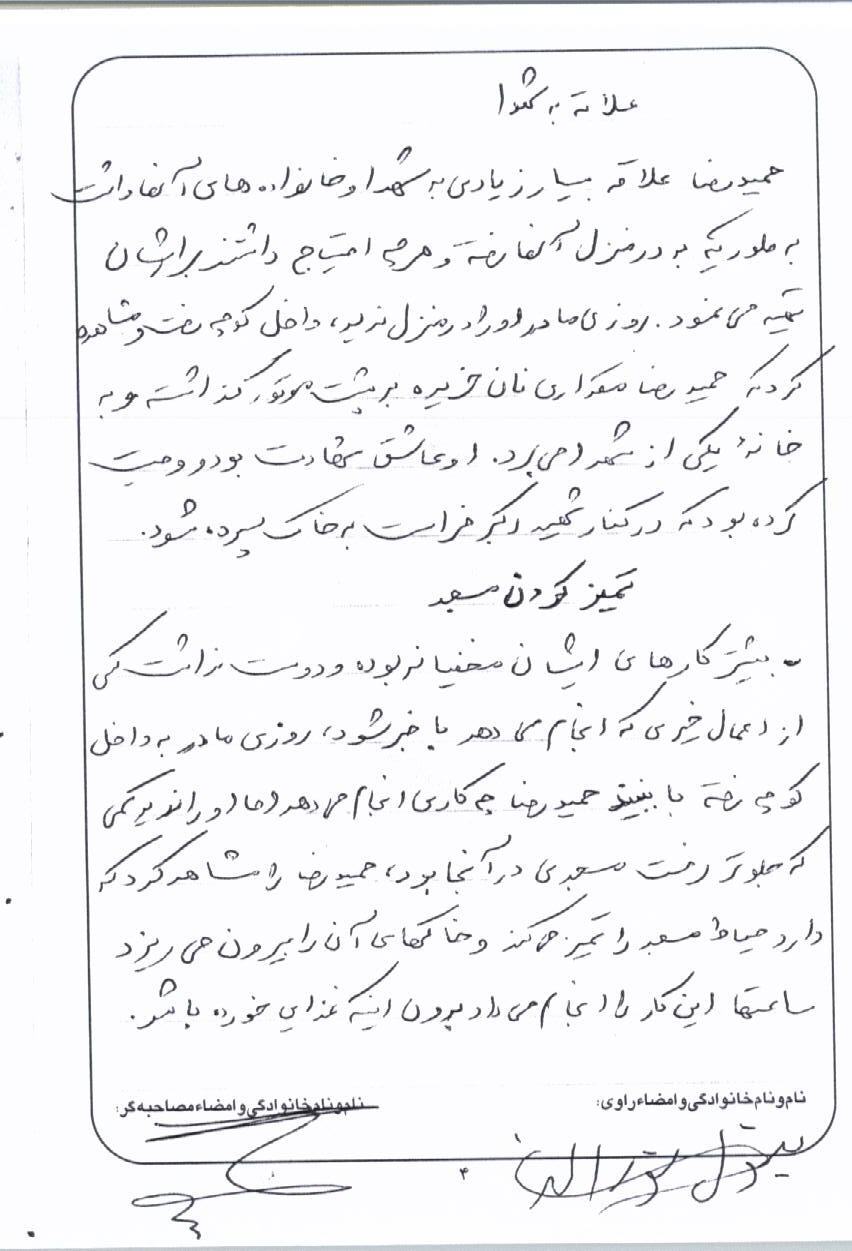 علاقه به شهدا
حمیدرضا علاقه بسیار زیادی به شهدا و خانواده های آنها داشت
به طوریکه به در منزل آنها رفته و هر چه احتیاج داشتند برایشان
تهیه می نمود. روزی مادر او را در منزل ندید، داخل کوچه رفت و مشاهده
کرد که حمیدرضا مقداری نان خریده بر پشت موتور گذاشته و به
خانهٔ یکی از شهدا می برد. او عاشق شهادت بود و وصیت
کرده بود که در کنار شهید اکبر فراست به خاک سپرده شود.
تمیز کردن مسجد
- بیشتر کارهای ایشان مخفیانه بوده و دوست نداشت کسی
از اعمال خیری که انجام می دهد با خبر شود، روزی مادر به داخل
کوچه رفته تا ببیند حمیدرضا چه کاری انجام می دهد اما او را ندید کمی
که جلوتر رفت مسجدی در آنجا بود، حمیدرضا را مشاهده کرد که
دارد حیاط مسجد را تمیز می کند و خاکهای آن را بیرون می ریزد
ساعتها این کار را انجام می داد بدون اینکه غذایی خورده باشد.
نام و نام خانوادگی و امضاء راوی:
نام و نام خانوادگی و امضاء مصاحبه گر:
۴